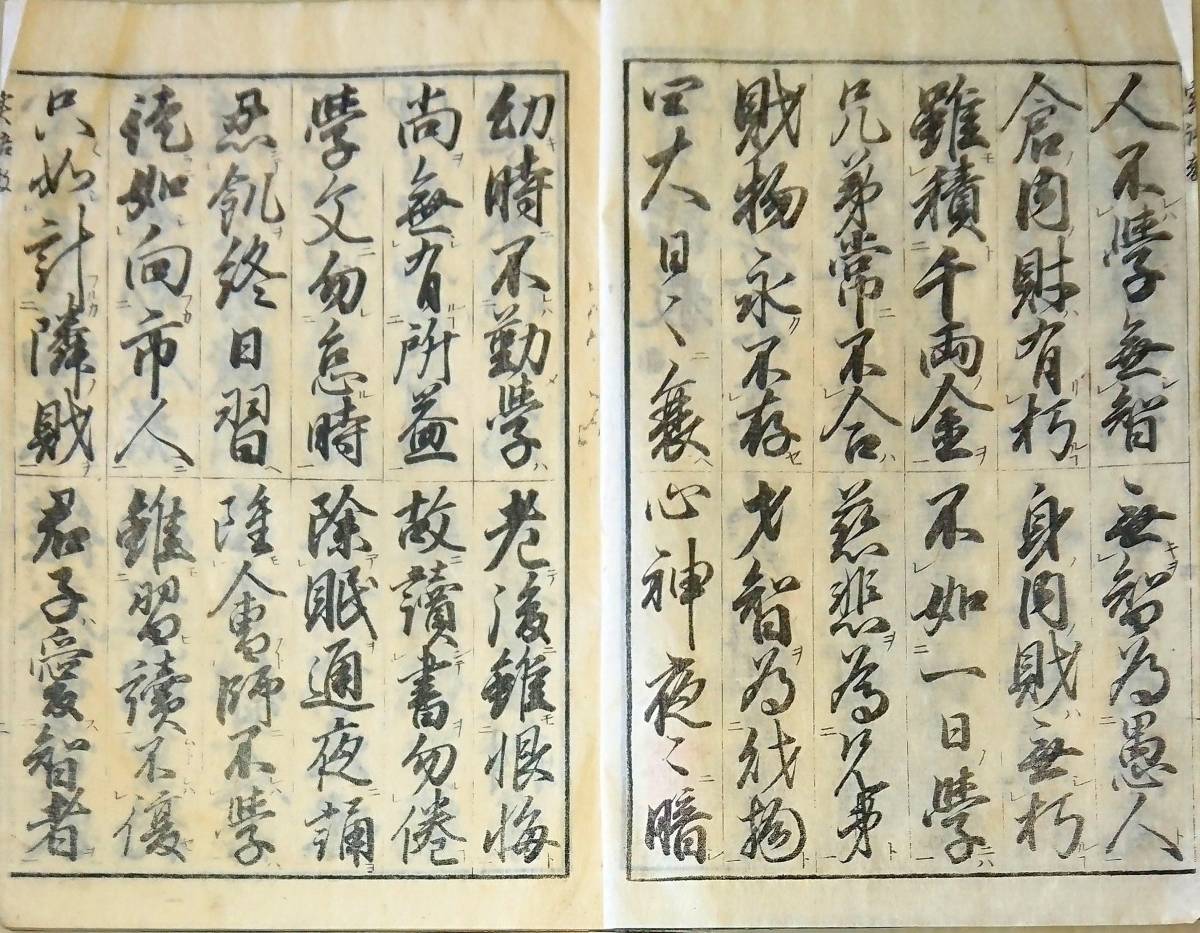 人不學無智 無智為愚人
倉内財有朽 身内財無朽
雖積千両金 不如一日學
兄弟常不合 慈悲為兄弟
財物永不存 才智為財物
四大日々衰 心神夜々暗
幼時不勤學 老後雖恨悔
尚無有所益 故讀書勿倦
學文勿怠時 除眠通夜誦
忍飢終日習 雖會師不學
徒如向市人 雖習讀不復
只如計隣財 君子愛智者
實語教